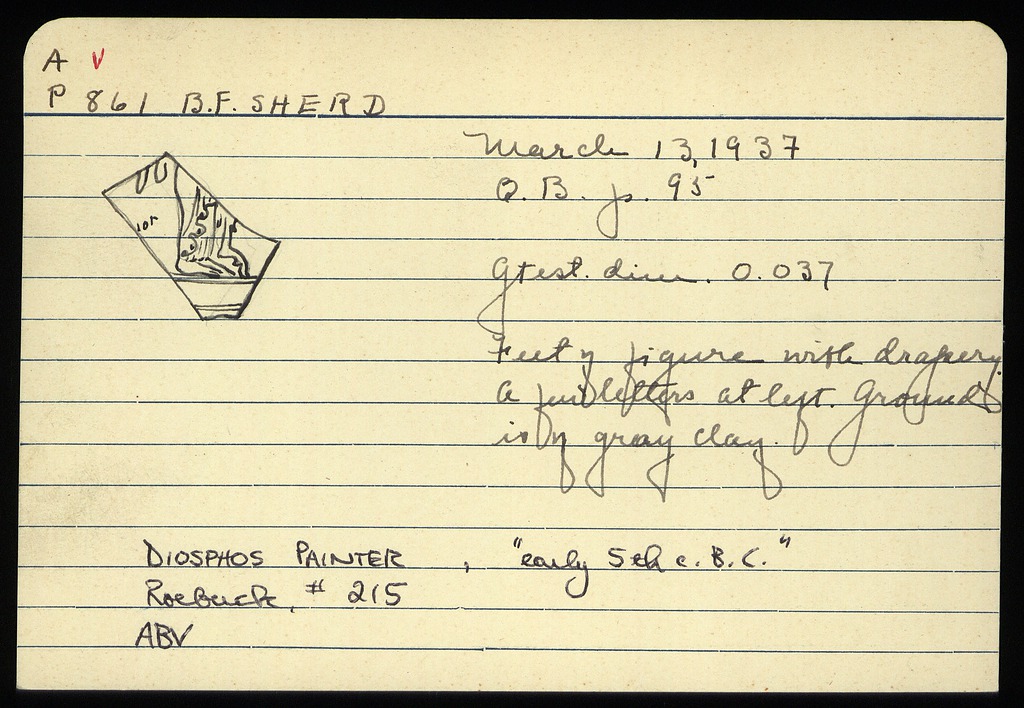 A V
P 861 B.F. SHERD
March 13, 1937
Q. B. p. 95
Gtest. dim. 0.037
Feet of figure with drapery
a few letters at left. Ground
is of gray clay.
DIOSPHOS PAINTER, "early 5th c. B.C."
Roebuck, # 215
ABV